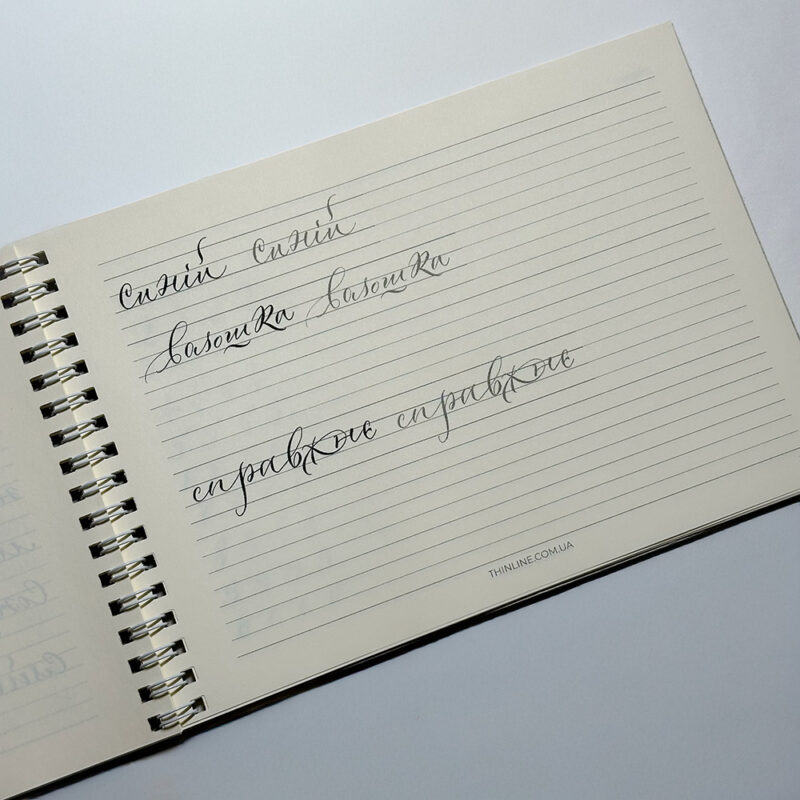 синій синій
волошка волошка
справжнє справжнє
THINLINE.COM.UA